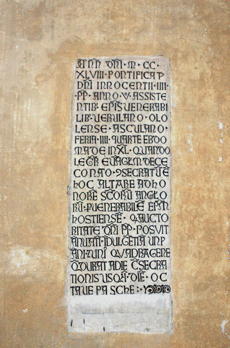 ANN DNI · M · CC ·
XLVIII · PONTIFICAT
DNI INNOCENTII · IIII ·
PP · ANNO · V · ASSISTE
NTIB EPIS VENERABI
LIB VERULANO · OLO
LENSE · ASCULANO ·
FERIA · IIII · QUARTE EBDO
MADE IN XL · QUANDO
LEGR EVAGLM DE CE
CO NATO · 9SECRATU E
HOC ALTARE AD HO
NORE SCORU ANGLO
RU · P VENERABILE EPM
HOSTIENSE · Q AUCTO
RITATE DNI PP · POSVIT
INDULGETIA UN
ANNI UNI QUADRAGENE
Q DURAT A DIE CSECRA
TIONIS USQ AD DIE · OC
TAVE PASCHE :